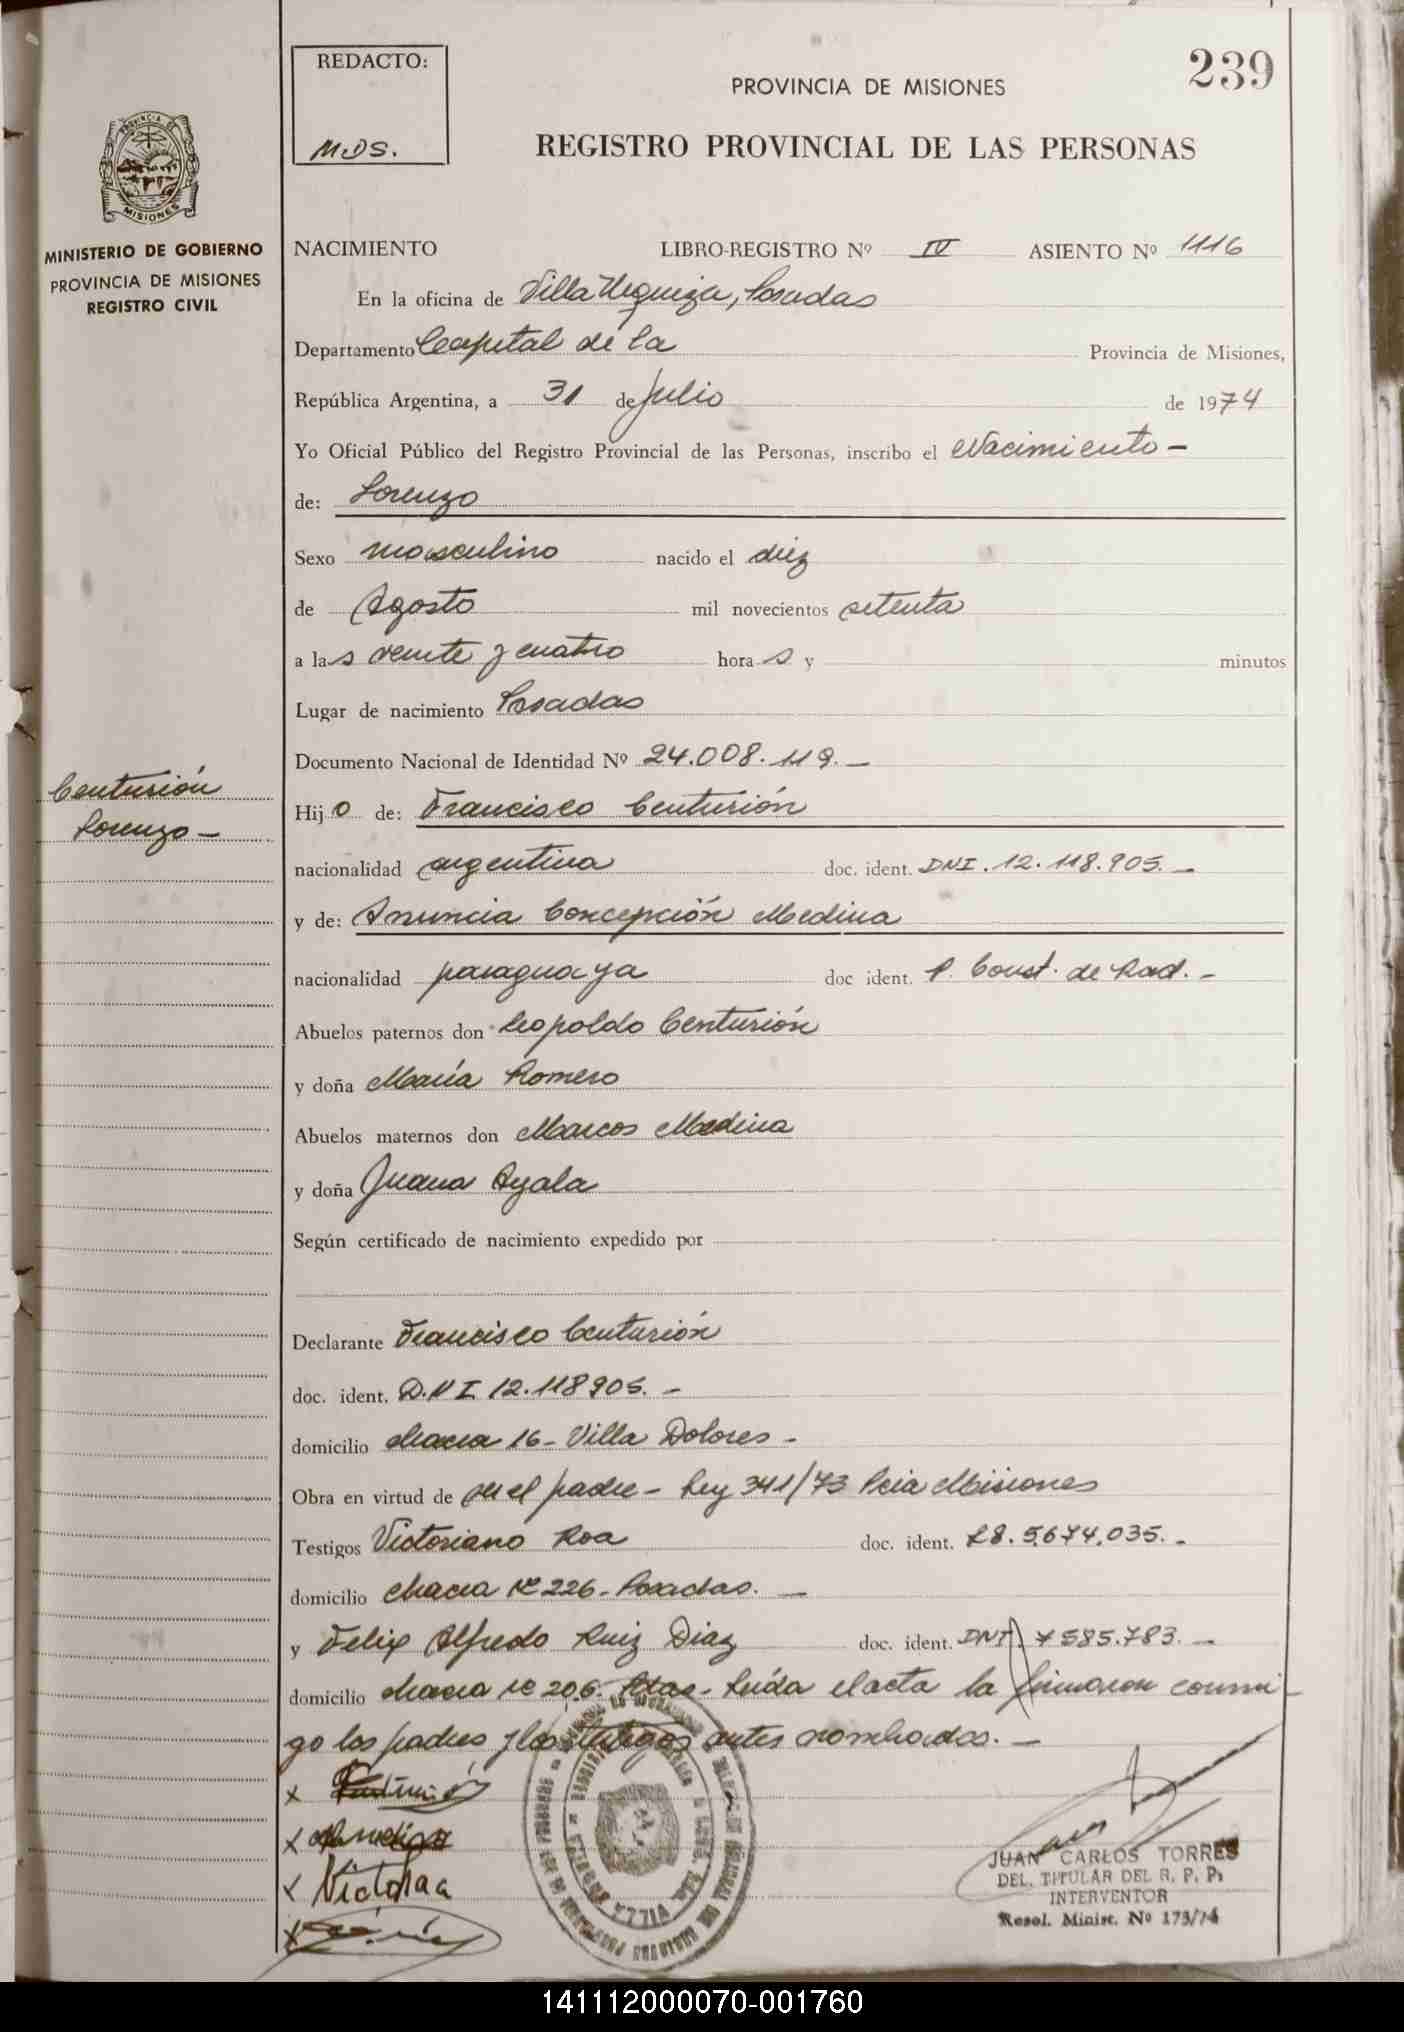 239
REDACTO:
M.D.S.
PROVINCIA DE MISIONES
REGISTRO PROVINCIAL DE LAS PERSONAS
PROVINCIA DE
MISIONES
MINISTERIO DE GOBIERNO
PROVINCIA DE MISIONES
REGISTRO CIVIL
NACIMIENTO LIBRO-REGISTRO Nº IV ASIENTO Nº 1116
En la oficina de Villa Urquiza, Posadas
Departamento Capital de la Provincia de Misiones,
República Argentina, a 31 de Julio de 1974
Yo Oficial Público del Registro Provincial de las Personas, inscribo el Nacimiento -
de: Lorenzo
Sexo masculino nacido el diez
de Agosto mil novecientos setenta
a las veinte y cuatro horas y minutos
Lugar de nacimiento Posadas
Documento Nacional de Identidad Nº 24.008.119.-
Centurión
Lorenzo -
Hijo de: Francisco Centurión
nacionalidad argentina doc. ident. DNI. 12.118.905.-
y de: Anuncia Concepción Medina
nacionalidad paraguaya doc ident. P. Const. de Rad. -
Abuelos paternos don Leopoldo Centurión
y doña María Romero
Abuelos maternos don Marcos Medina
y doña Juana Ayala
Según certificado de nacimiento expedido por
Declarante Francisco Centurión
doc. ident. D.N.I 12.118905. -
domicilio chacra 16 - Villa Dolores -
Obra en virtud de ser el padre - Ley 341/73 Pcia Misiones
Testigos Victoriano Roa doc. ident. 5.674.035. -
domicilio chacra Nº 226 - Posadas. -
y Felix Alfredo Ruiz Diaz doc. ident. DNI. 7585.783. -
domicilio chacra Nº 206. Pdas - Leída el acta la firmaron conmi-
go los padres y los testigos antes nombrados. -
x Centurión
x
x Victo Roa
x
VILLA URQUIZA
JUAN CARLOS TORRES
DEL. TITULAR DEL R. P. P.
INTERVENTOR
Resol. Minist. Nº 173/74
141112000070-001760